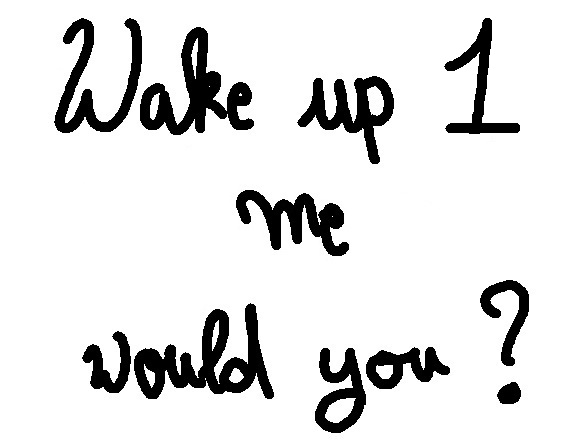 Wake up 1
me
would you?